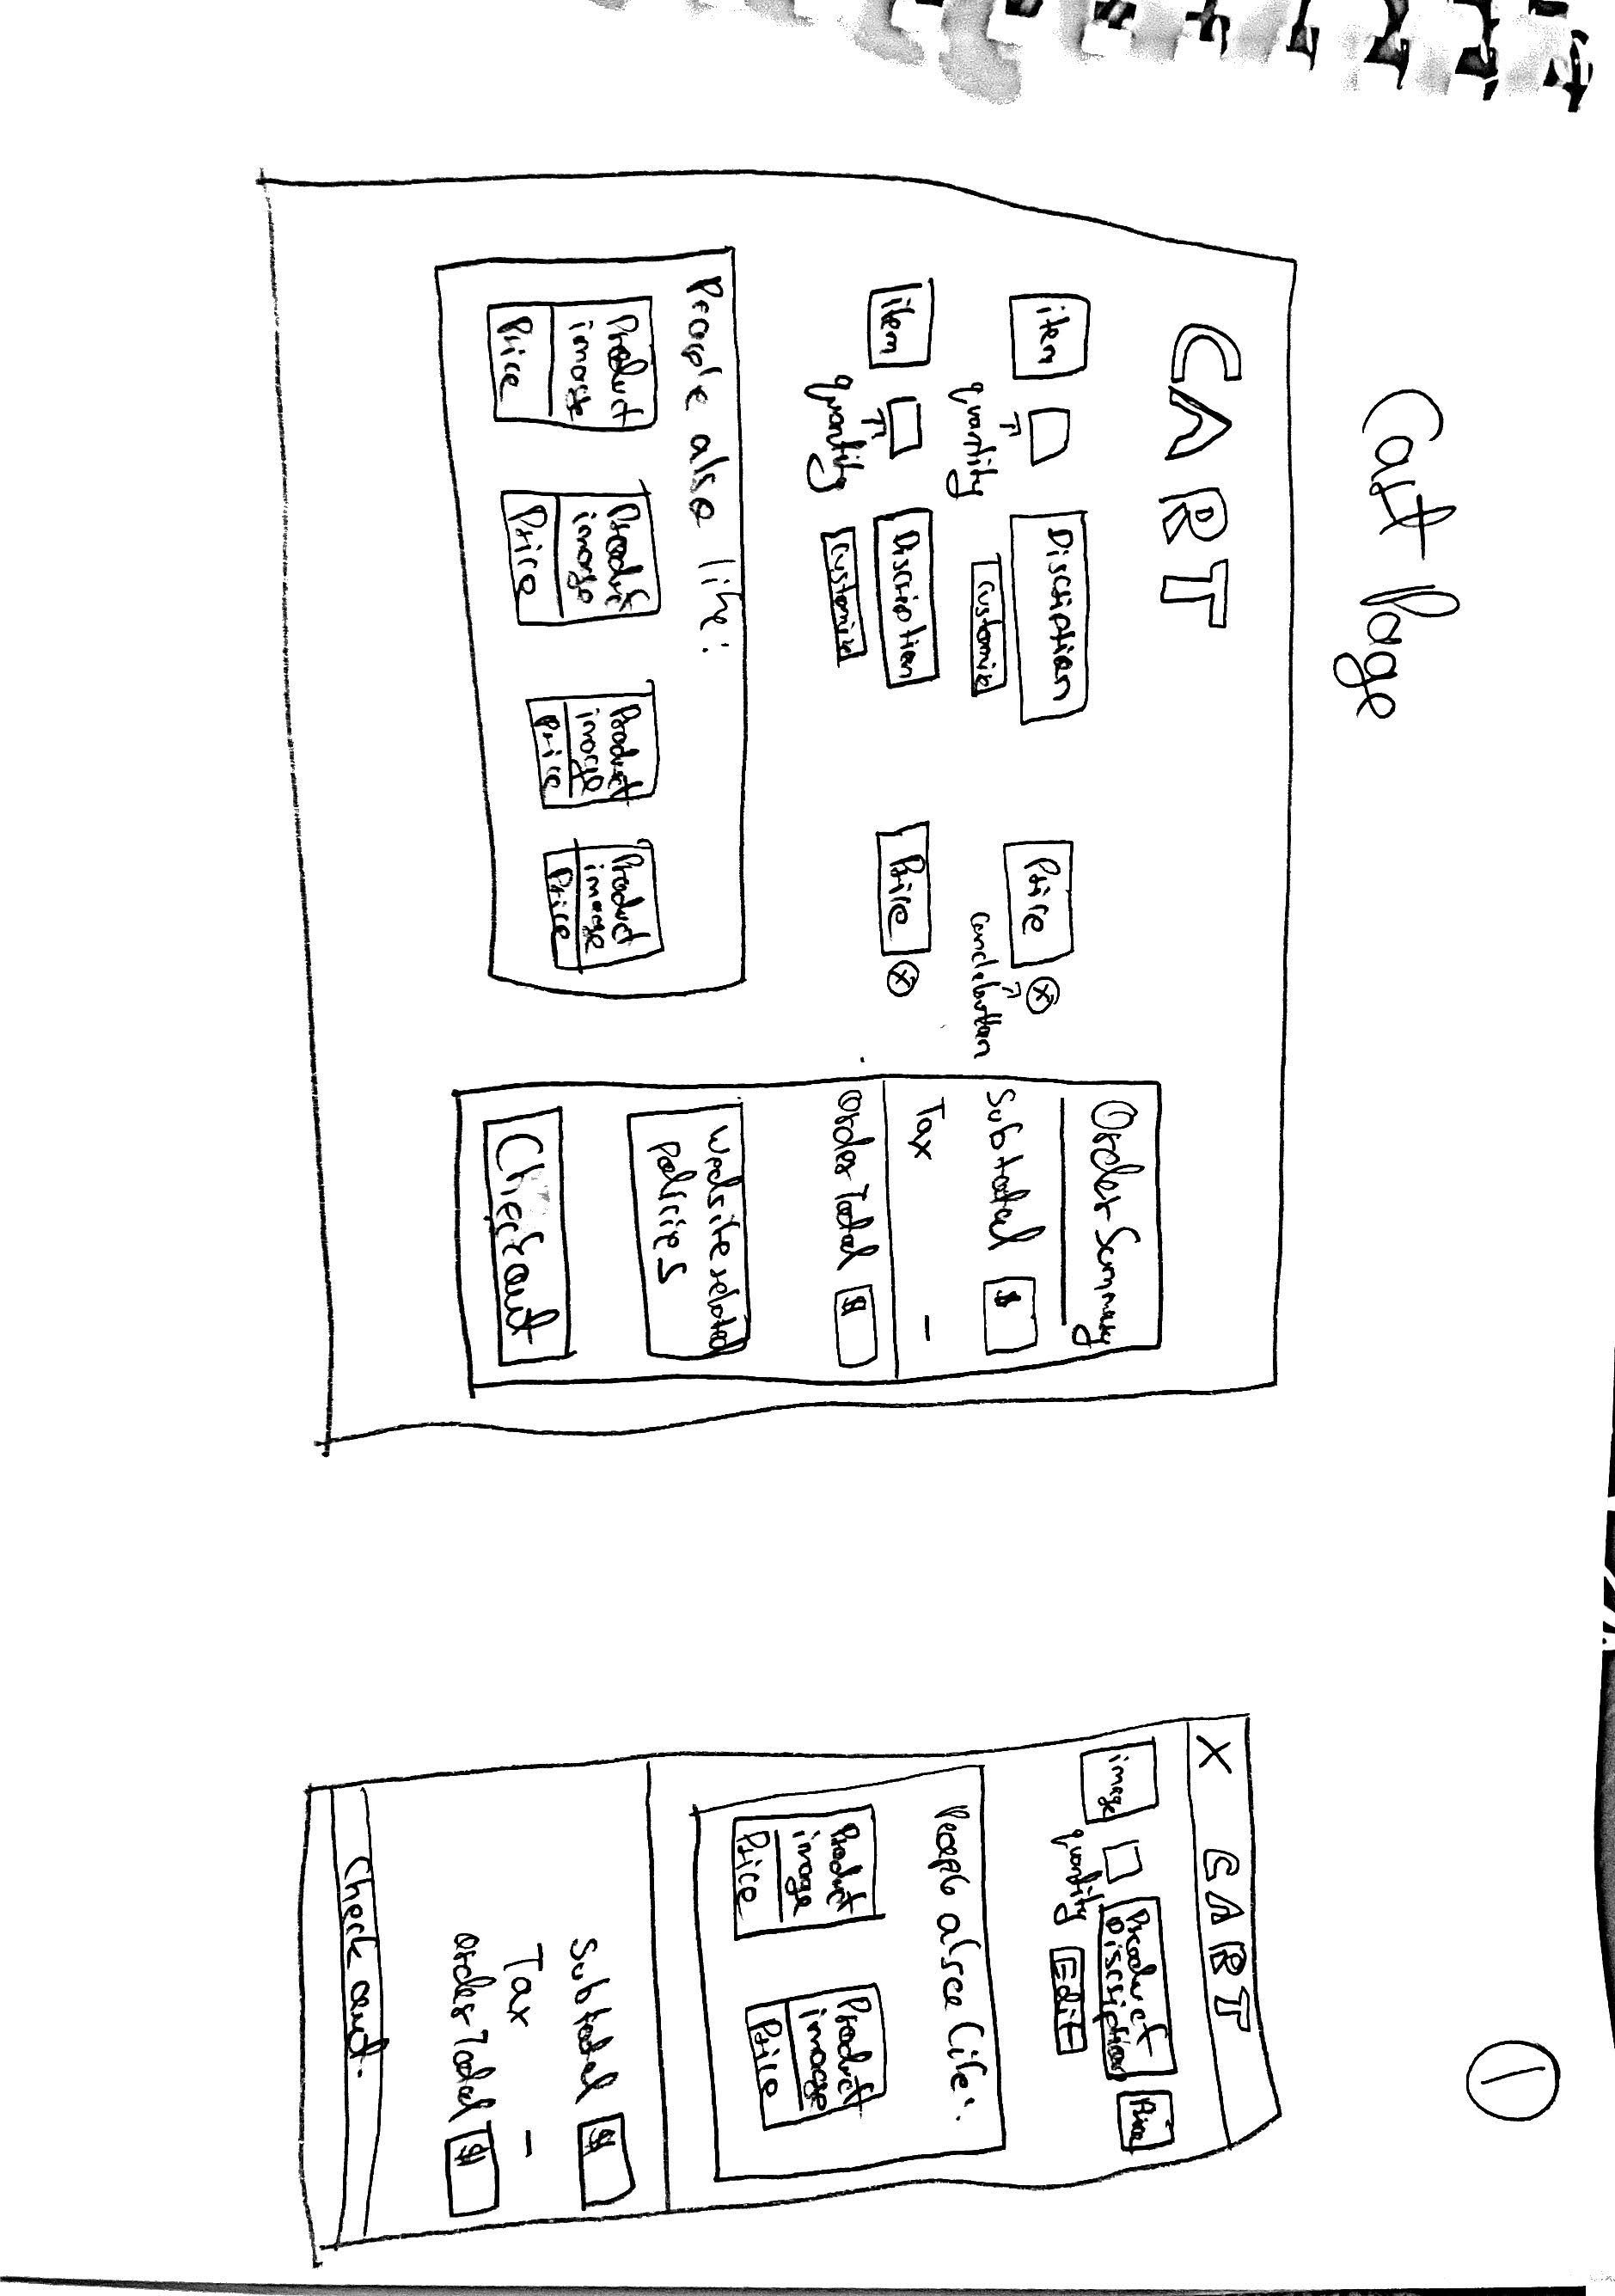 Cart Page
1
CART
item
quantity
Discription
Customize
Price
X
cancel button
item
quantity
Discription
Customize
Price
X
People also like:
Product image
Price
Product image
Price
Product image
Price
Product image
Price
Order Summary
Subtotal $
Tax –
Order Total $
Website related
policies
Checkout
X CART
image
quantity
Product
Discription
Edit
Price
People also like:
Product image
Price
Product image
Price
Subtotal $
Tax –
Order Total $
Check out